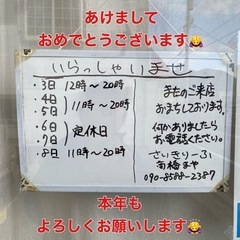 あけまして
おめでとうございます🙇
いらっしゃいませ
・3日 12時〜20時
・4日
・5日 11時〜20時
・6日
・7日 定休日
・8日 11時〜20時
またのご来店
おまちしております。
何かありましたら
お電話ください。
さいきりーふ
南橋まや
090-8588-2387
本年も
よろしくお願いします🙇